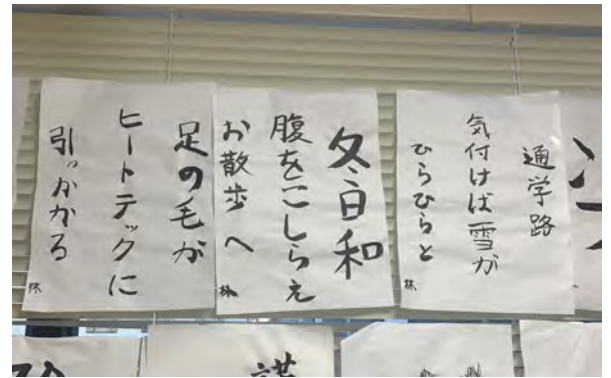 通学路
気付けば雪が
ひらひらと
林
冬日和
腹をこしらえ
お散歩へ
林
足の毛が
ヒートテックに
引っかかる
林